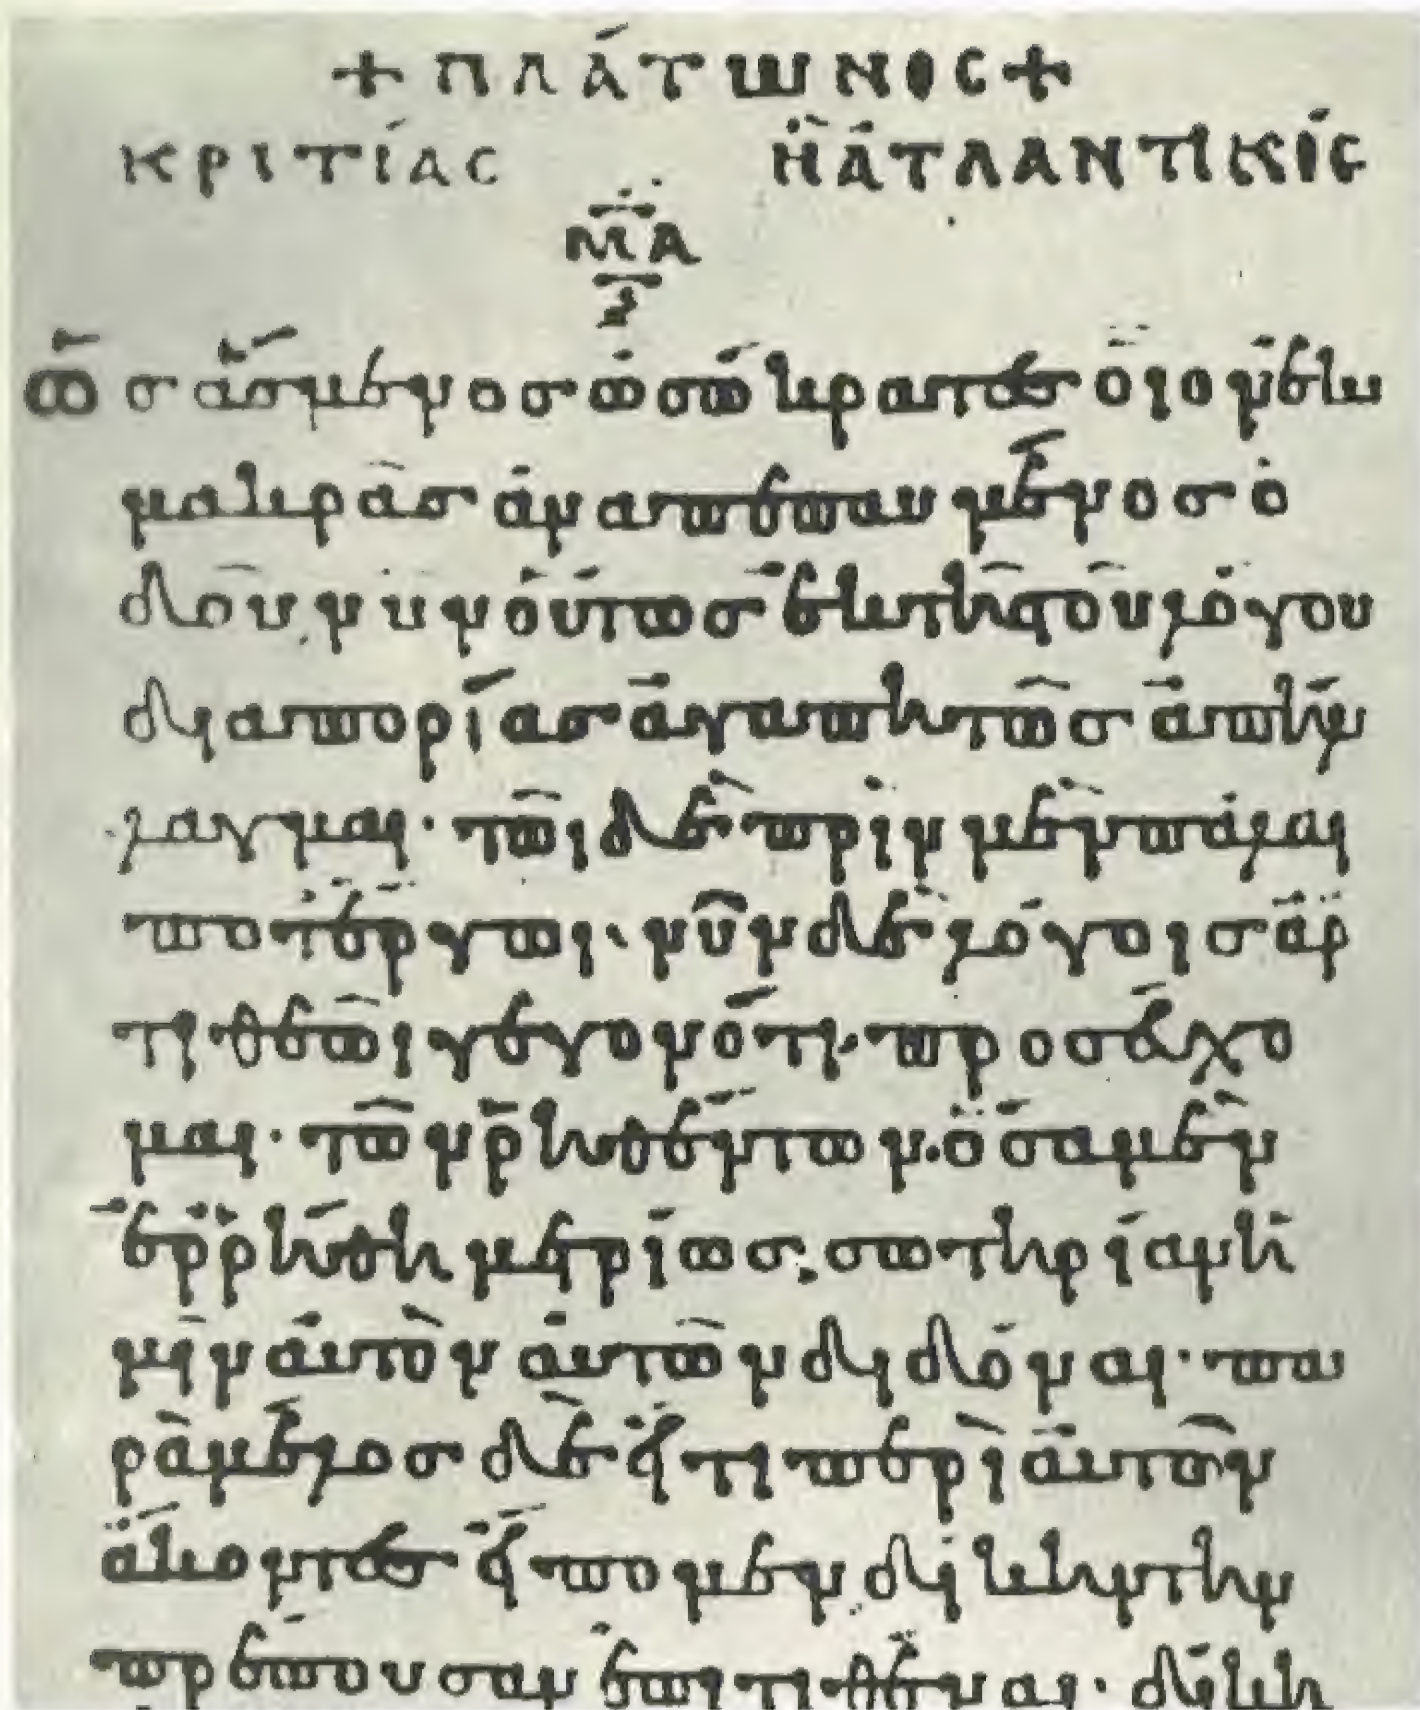 + ΠΛΆΤΩΝΟC +
ΚΡΙΤΊΑC ἪἈΤΛΑΝΤΙΚΌC
ΜΑ
ὡσ ἄσμενοσ ὦ σώκρατεσ οἷον ἐκ
μακρᾶσ ἀναπεπαυμένοσ ὁ
δοῦ, νῦν οὕτωσ ἐκ τῆσ τοῦ λόγου
διαπορίασ ἀγαπητῶσ ἀπήλ
λαγμαι· τῶι δὲ πρὶν μὲν πάλαι
ποτ' ἔργωι· νῦν δὲ λόγοισ ἄρ
τι θεῶι γεγονότι· προσεύχο
μαι· τῶν ῥηθέντων· ὅσα μὲν
ἐρρήθη μετρίωσ, σωτηρίαν ἡ
μῖν αὐτὸν αὐτῶν διδόναι· πα
ρὰ μέλοσ δὲ εἴ τι περὶ αὐτῶν
ἄκοντεσ εἴπομεν δίκην τὴν
πρέπουσαν ἐπιτιθέναι· δίκη